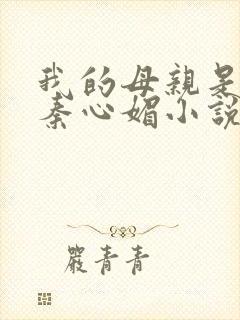 我的母親是
秦心媚小說
嚴青青